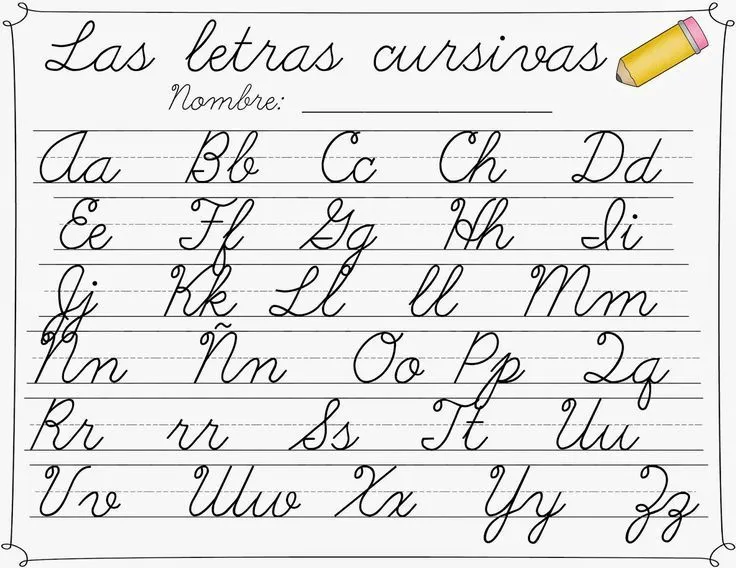 Las letras cursivas
Nombre: ____________________
Aa Bb Cc Ch Dd
Ee Ff Gg Hh Ii
Jj Kk Ll ll Mm
Nn Ñn Oo Pp Qq
Rr rr Ss Tt Uu
Vv Ww Xx Yy Zz